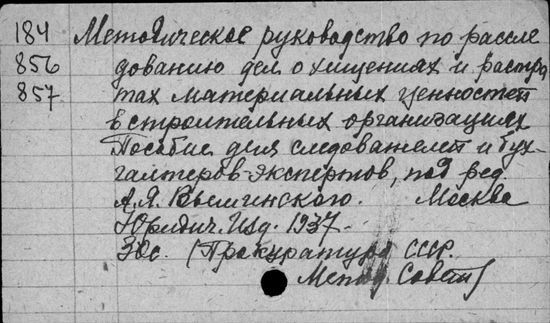 184 Методическое руководство по рассле
856 дованию дел о хищениях и растра
857 тах материальных ценностей
в строительных организациях
Пособие для следователей и бух-
галтеров-экспертов, под ред.
А.Я. Вышинского. Москва
Юридич. Изд. 1937.
30с. (Прокуратура СССР.
Метод. Совет)